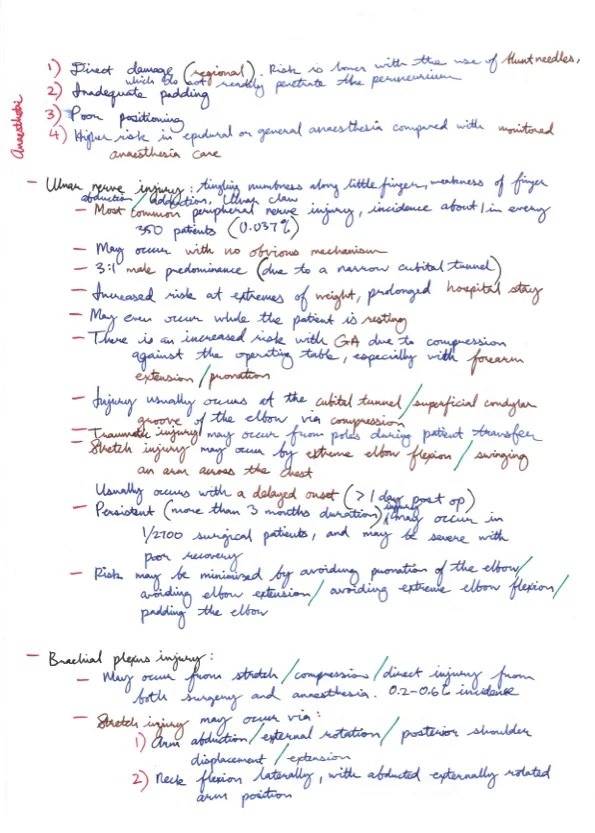 Anaesthetic
1) Direct damage (regional). Risk is lower with the use of blunt needles,
which do not readily penetrate the perineurium
2) Inadequate padding
3) Poor positioning
4) Higher risk in epidural or general anaesthesia compared with monitored
anaesthesia care
- Ulnar nerve injury: tingling numbness along little finger, weakness of finger
abduction/adduction, Ulnar claw
- Most common peripheral nerve injury, incidence about 1 in every
350 patients (0.037%)
- May occur with no obvious mechanism
- 3:1 male predominance (due to a narrow cubital tunnel)
- Increased risk at extremes of weight, prolonged hospital stay
- May even occur while the patient is resting
- There is an increased risk with GA due to compression
against the operating table, especially with forearm
extension/pronation
- Injury usually occurs at the cubital tunnel/superficial condylar
groove of the elbow via compression
- Traumatic injury may occur from poles during patient transfer
- Stretch injury may occur by extreme elbow flexion/swinging
an arm across the chest
Usually occurs with a delayed onset (>1 day post op)
- Persistent (more than 3 months duration) injury may occur in
1/2700 surgical patients, and may be severe with
poor recovery
- Risk may be minimised by avoiding pronation of the elbow/
avoiding elbow extension/avoiding extreme elbow flexion/
padding the elbow
- Brachial plexus injury:
- May occur from stretch/compression/direct injury from
both surgery and anaesthesia. 0.2-0.6% incidence
- Stretch injury may occur via:
1) Arm abduction/external rotation/posterior shoulder
displacement/extension
2) Neck flexion laterally, with abducted externally rotated
arm position